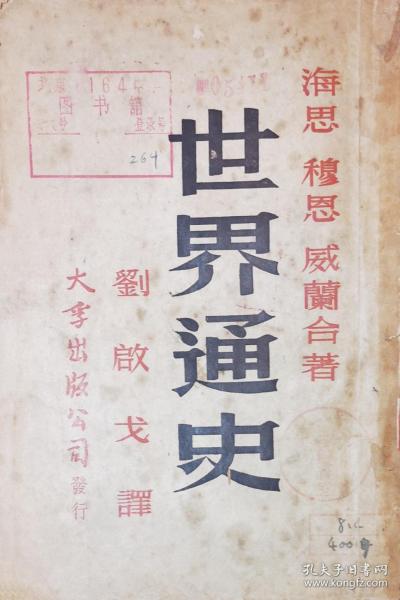 海思 穆恩 威蘭合著
世界通史
劉啟戈譯
大孚出版公司發行
164
图书館
登录号
264
400
孔夫子旧书网
www.kongfz.com